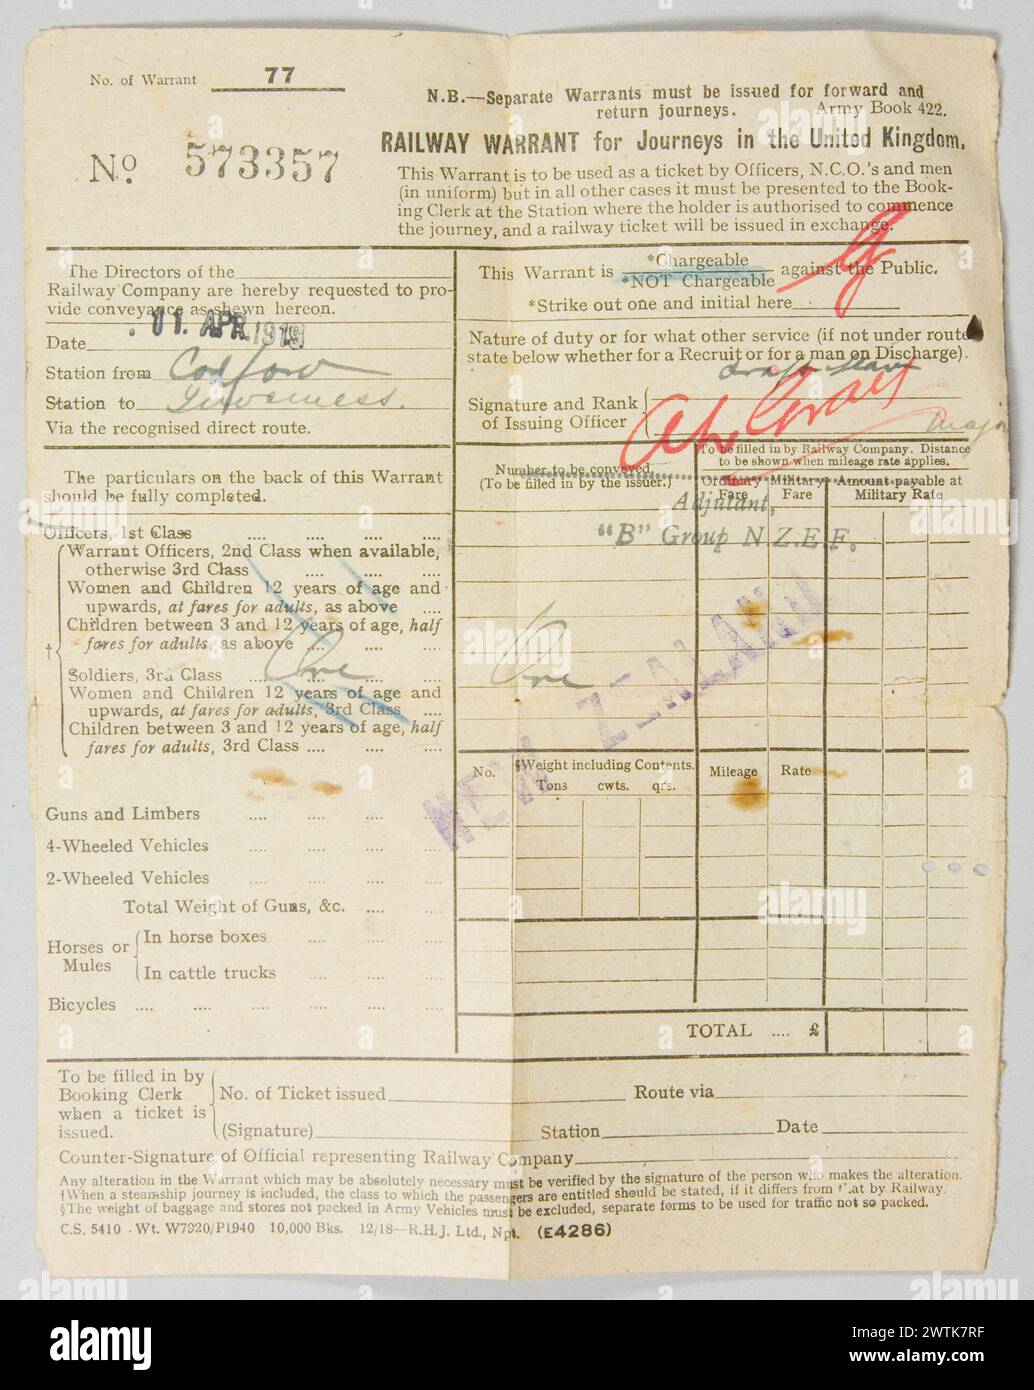 No. of Warrant 77
N.B.—Separate Warrants must be issued for forward and
return journeys. Army Book 422.
No 573357
RAILWAY WARRANT for Journeys in the United Kingdom.
This Warrant is to be used as a ticket by Officers, N.C.O.'s and men
(in uniform) but in all other cases it must be presented to the Book-
ing Clerk at the Station where the holder is authorised to commence
the journey, and a railway ticket will be issued in exchange.
The Directors of the
Railway Company are hereby requested to pro-
vide conveyance as shewn hereon.
Date 01. APR. 1919
Station from Codford
Station to Inverness.
Via the recognised direct route.
This Warrant is *Chargeable
*NOT Chargeable against the Public.
*Strike out one and initial here
Nature of duty or for what other service (if not under route
state below whether for a Recruit or for a man on Discharge).
Signature and Rank
of Issuing Officer
Major
Adjutant,
"B" Group N.Z.E.F.
The particulars on the back of this Warrant
should be fully completed.
Number to be conveyed.
(To be filled in by the issuer.)
To be filled in by Railway Company. Distance
to be shown when mileage rate applies.
Ordinary Fare
Military Fare
Amount payable at
Military Rate
Officers, 1st Class .... .... .... ....
Warrant Officers, 2nd Class when available,
otherwise 3rd Class .... .... ....
Women and Children 12 years of age and
upwards, at fares for adults, as above ....
Children between 3 and 12 years of age, half
fares for adults, as above .... .... ....
†
Soldiers, 3rd Class .... One .... .... One
Women and Children 12 years of age and
upwards, at fares for adults, 3rd Class ....
Children between 3 and 12 years of age, half
fares for adults, 3rd Class .... .... ....
NEW ZEALAND
No.
§Weight including Contents.
Tons cwts. qrs.
Mileage
Rate
Guns and Limbers .... .... .... ....
4-Wheeled Vehicles .... .... .... ....
2-Wheeled Vehicles .... .... .... ....
Total Weight of Guns, &c. .... ....
Horses or
Mules
In horse boxes .... .... ....
In cattle trucks .... .... ....
Bicycles .... .... .... .... .... ....
TOTAL .... £
To be filled in by
Booking Clerk
when a ticket is
issued.
No. of Ticket issued Route via
(Signature) Station Date
Counter-Signature of Official representing Railway Company
Any alteration in the Warrant which may be absolutely necessary must be verified by the signature of the person who makes the alteration.
†When a steamship journey is included, the class to which the passengers are entitled should be stated, if it differs from that by Railway.
§The weight of baggage and stores not packed in Army Vehicles must be excluded, separate forms to be used for traffic not so packed.
C.S. 5410 . Wt. W7920/P1940 10,000 Bks. 12/18—R.H.J. Ltd., Npt. (E4286)
alamy
Image ID: 2WTK7RF
www.alamy.com